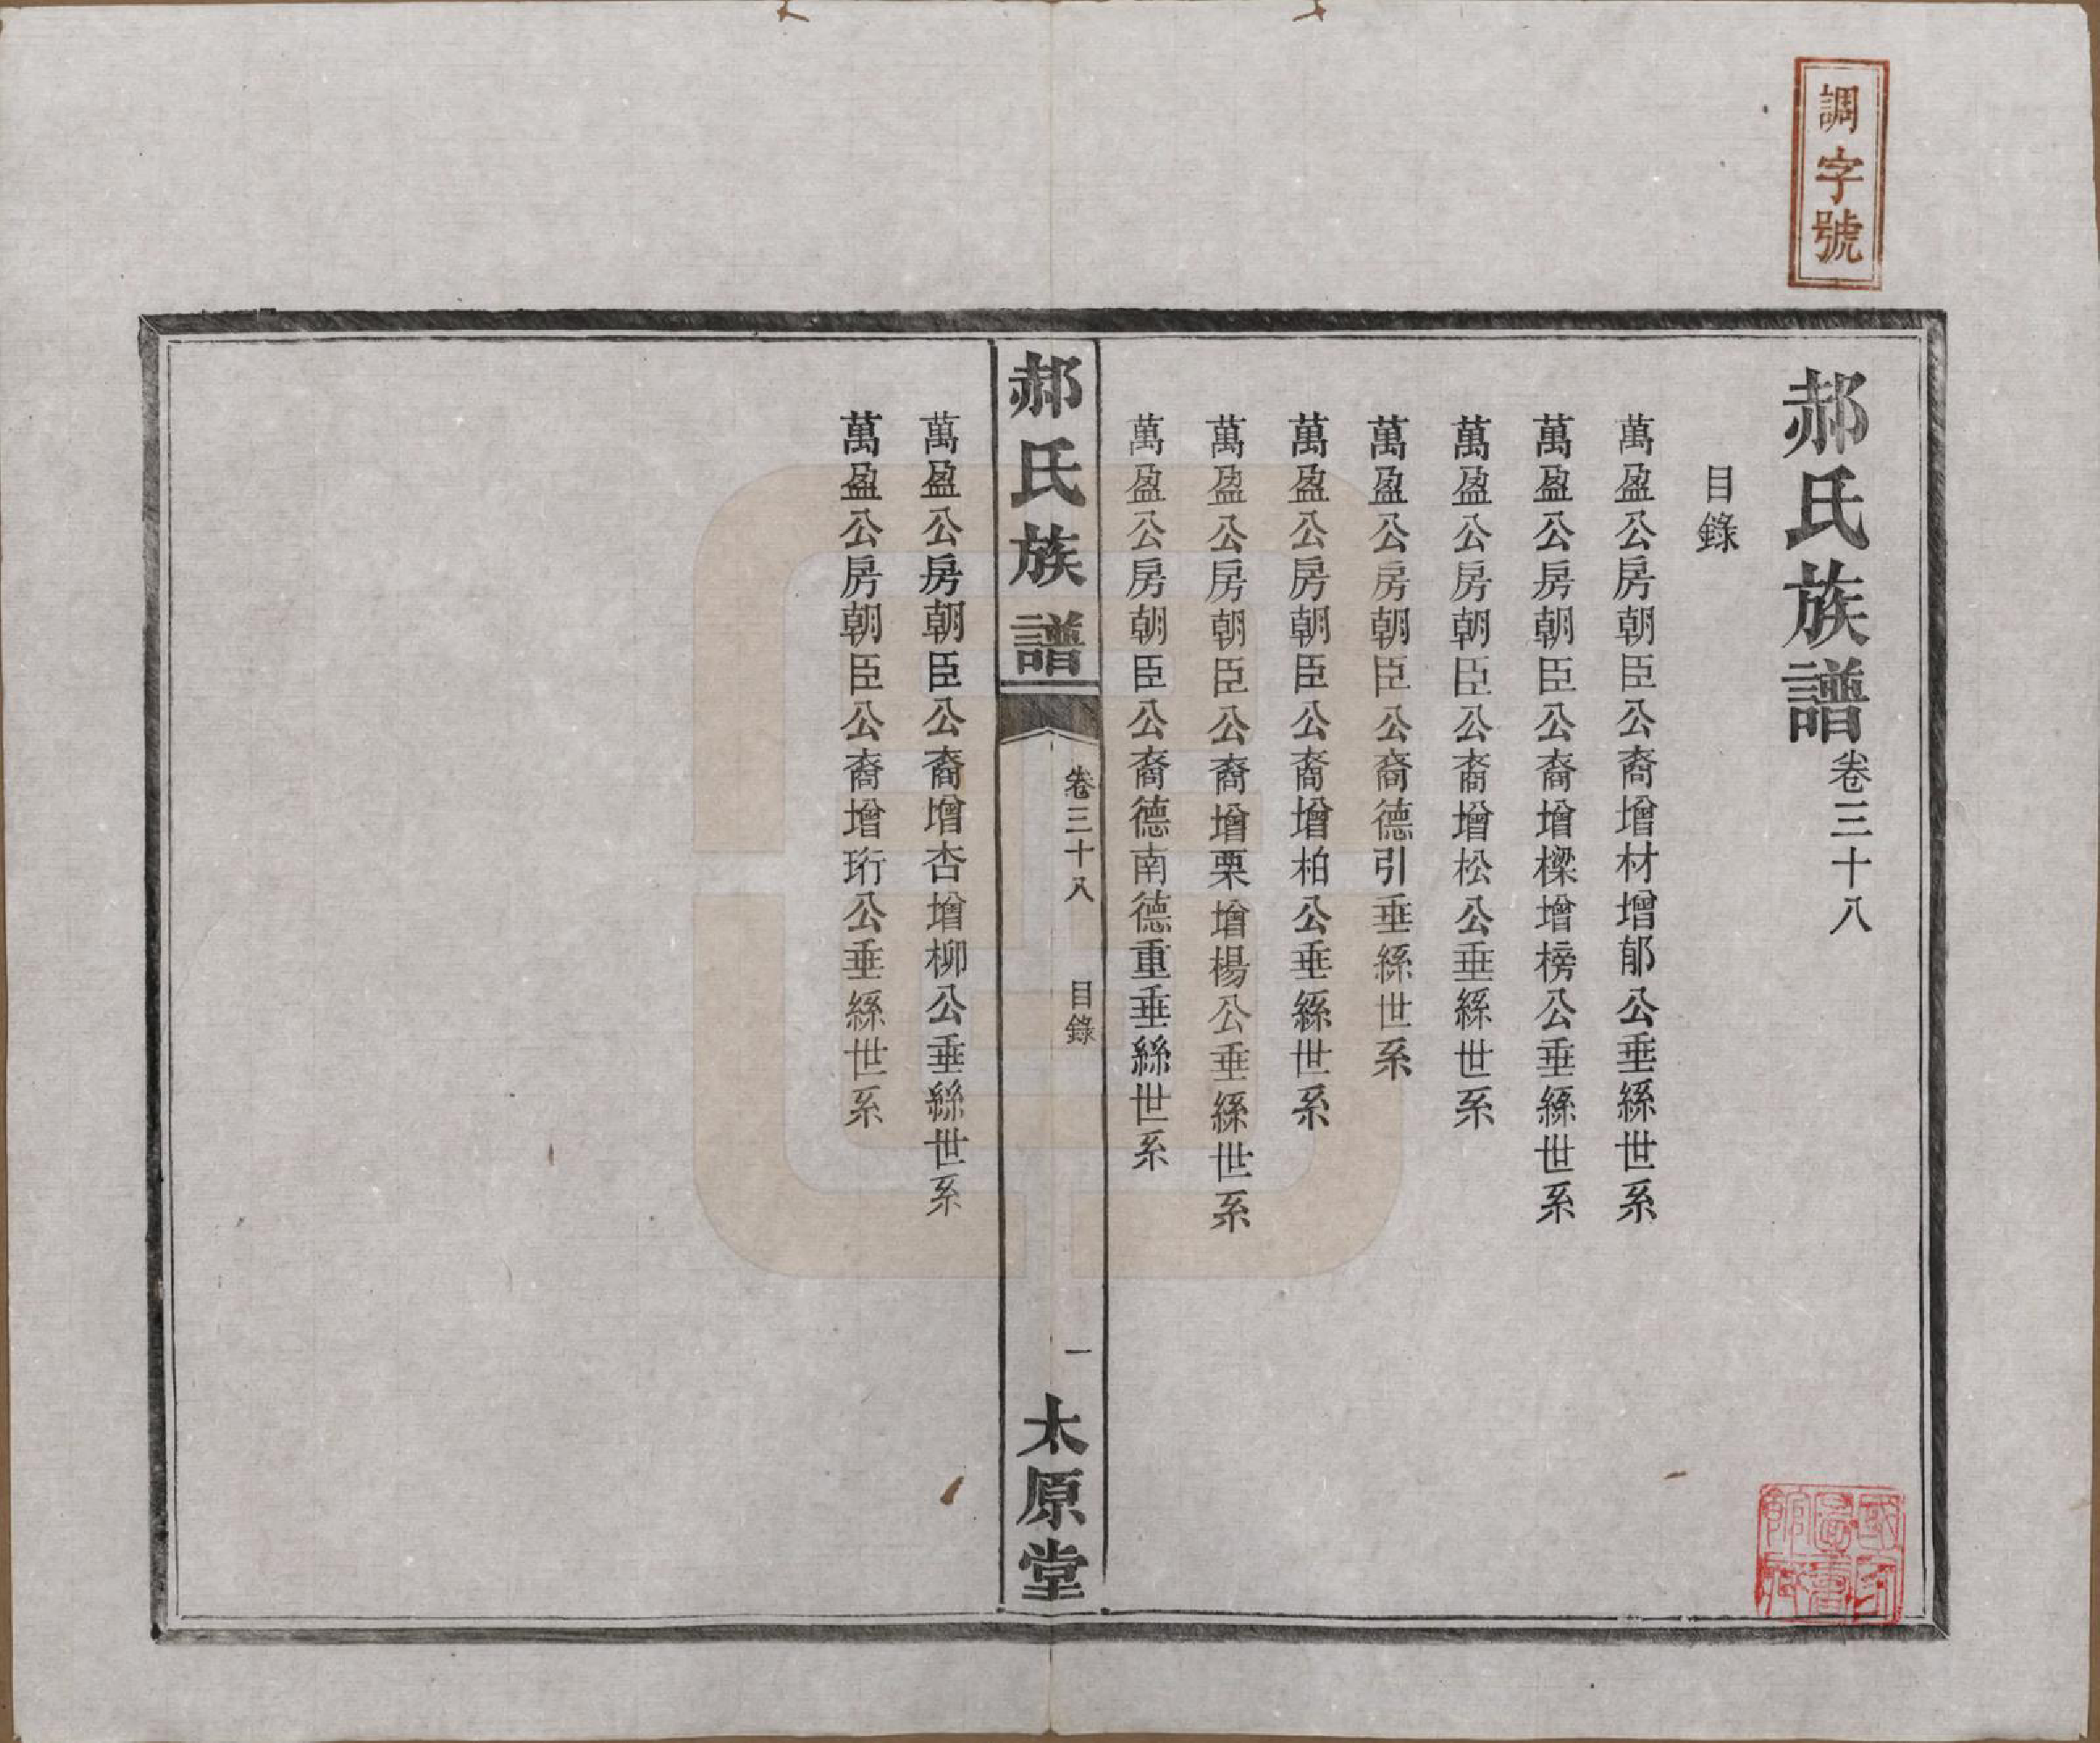 調字號
郝氏族譜卷三十八
目錄
萬盈公房朝臣公裔增材增郁公垂絲世系
萬盈公房朝臣公裔增樑增榜公垂絲世系
萬盈公房朝臣公裔增松公垂絲世系
萬盈公房朝臣公裔德引垂絲世系
萬盈公房朝臣公裔增柏公垂絲世系
萬盈公房朝臣公裔增栗增楊公垂絲世系
萬盈公房朝臣公裔德南德重垂絲世系
郝氏族譜
卷三十八 目錄
一
太原堂
萬盈公房朝臣公裔增杏增柳公垂絲世系
萬盈公房朝臣公裔增珩公垂絲世系
國家
圖書
館藏